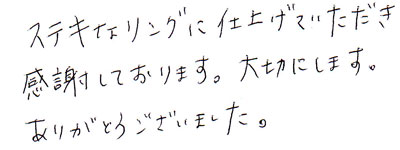 ステキなリングに仕上げていただき
感謝しております。大切にします。
ありがとうございました。